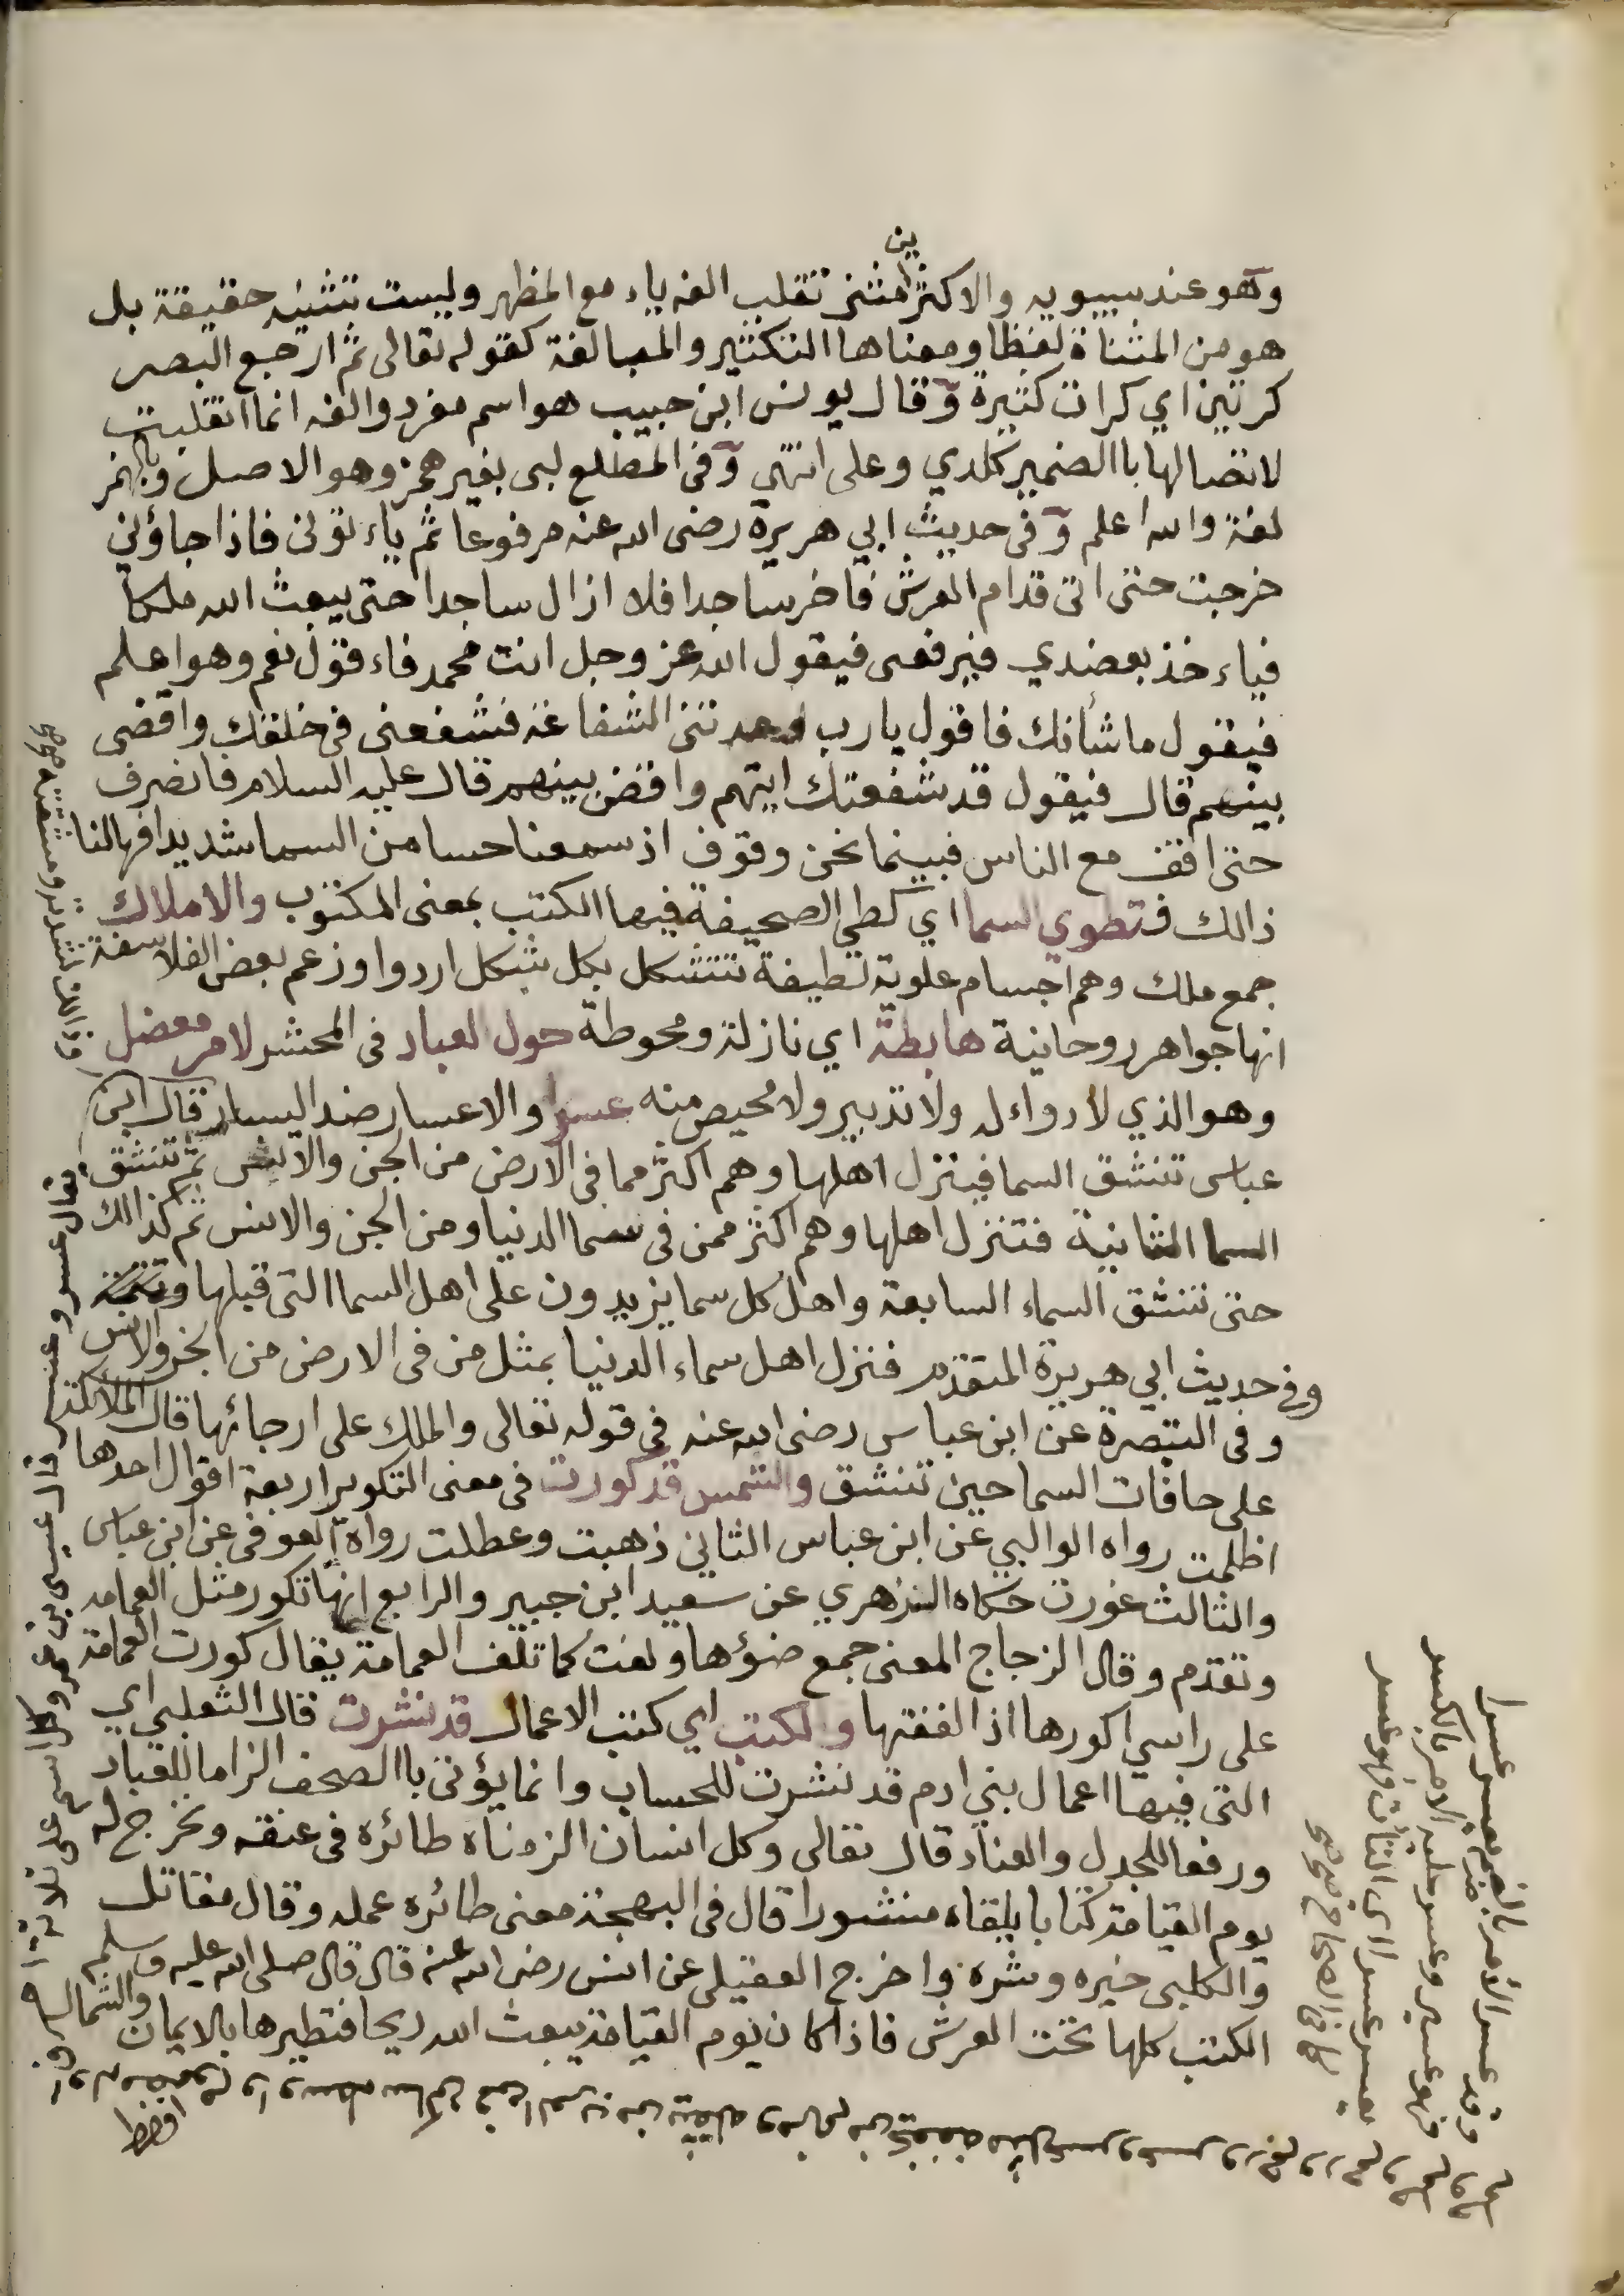 وهو عند سيبويه والاكثرين مثنى تقلب الفه ياء مع المظهر وليست تثنيته حقيقة بل
هو من المثناة لفظا ومعناها التكثير والمبالغة كقوله تعالى ثم ارجع البصر
كرتين اي كرات كثيرة وقال يونس ابن حبيب هو اسم مفرد والفه انما انقلبت
لاتصالها باالضمير كلدي وعلى انتهى وفي المطلع لبى بغير همز وهو الاصل وبالهمز
لغة والله اعلم وفي حديث ابي هريرة رضى الله عنه مرفوعا ثم ياء تونى فاذا جاؤني
خرجت حتى اتى قدام العرش فاخر ساجدا فلا ازال ساجدا حتى يبعث الله ملكا
فياء خذ بعضدي فيرفعى فيقول الله عز وجل انت محمد فاء قول نعم وهو اعلم
فيقول ما شأنك فاقول يا رب وعدتنى الشفاعة فشفعنى في خلقك واقضى
بينهم قال فيقول قد شفعتك ايتهم واقض بينهم قال عليه السلام فانصرف
حتى اقف مع الناس فبينما نحن وقوف اذ سمعنا حسا من السما شديدا فهالنا
ذالك فتطوي السما اي كطي الصحيفة فيها الكتب بمعنى المكتوب والاملاك
جمع ملك وهم اجسام علوية لطيفة تتشكل بكل شكل اردوا وزعم بعض الفلاسفة
انها جواهر روحانية هابطة اي نازلة ومحوطة حول العباد في المحشر لامر معضل
وهو الذي لا دواء له ولا تدبير ولا محيص منه عسرا والاعسار ضد اليسار قال ابن
عباس تنشق السما فينزل اهلها وهم اكثر مما في الارض من الجن والانس ثم تنشق
السما الثانية فتنزل اهلها وهم اكثر ممن في سما الدنيا ومن الجن والانس ثم كذالك
حتى تنشق السماء السابعة واهل كل سما يزيدون على اهل السما التى قبلها
وفي حديث ابي هريرة المتقدم فنزل اهل سماء الدنيا بمثل من في الارض من الجن والانس
وفي التبصرة عن ابن عباس رضى الله عنه في قوله تعالى والملك على ارجائها قال الملائكة
على حافات السما حين تنشق والشمس قد كورت في معنى التكوير اربعة اقوال احدها
اظلمت رواه الوالبي عن ابن عباس الثاني ذهبت وعطلت رواه العوفي عن ابن عباس
والثالث غورت حكاه الزهري عن سعيد ابن جبير والرابع انها تكور مثل العمامة
وتقدم وقال الزجاج المعنى جمع ضوؤها ولفت كما تلف العمامة يقال كورت العمامة
على راسي اكورها اذا لففتها والكتب اي كتب الاعمال قد نشرت قال الثعلبي اي
التى فيها اعمال بني ادم قد نشرت للحساب وانما يؤتى باالصحف الزاما للعباد
ورفعا للجدل والعناد قال تعالى وكل انسان الزمناه طائره في عنقه ونخرج له
يوم القيامة كتابا يلقاه منشورا قال في البهجة معنى طائره عمله وقال مقاتل
والكلبى خيره وشره واخرج العقيلى عن انس رضى الله عنه قال قال صلى الله عليه وسلم
الكتب كلها تحت العرش فاذا كان يوم القيامة يبعث الله ريحا فتطيرها بالايمان والشمال
وقد عسر الأمر بالضم يعسر عسرا
فهو عسير وعسر عليه الامر بالكسر
يعسر عسرا اى التاث فهو عسر